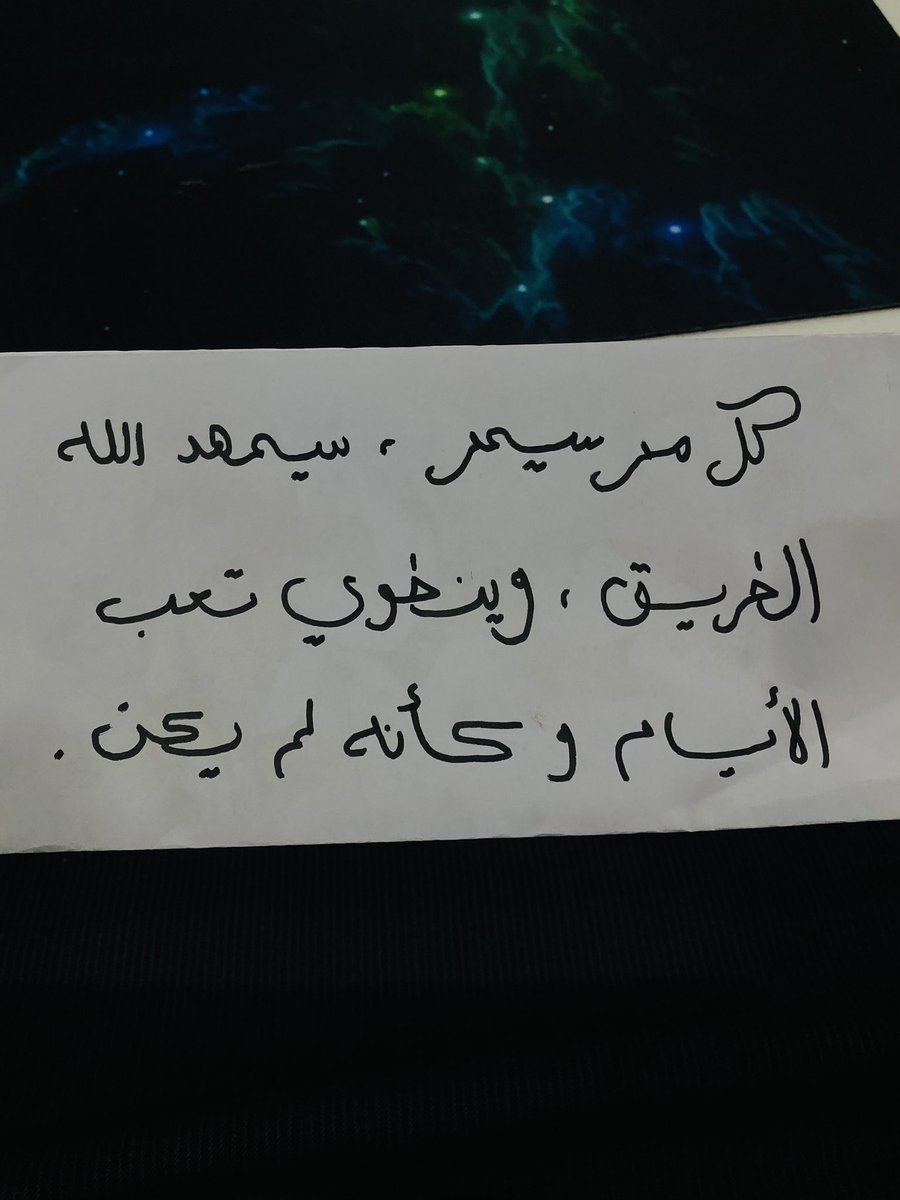 كل مر سيمر ، سيمهد الله
الطريق ، وينطوي تعب
الأيام وكأنه لم يكن .